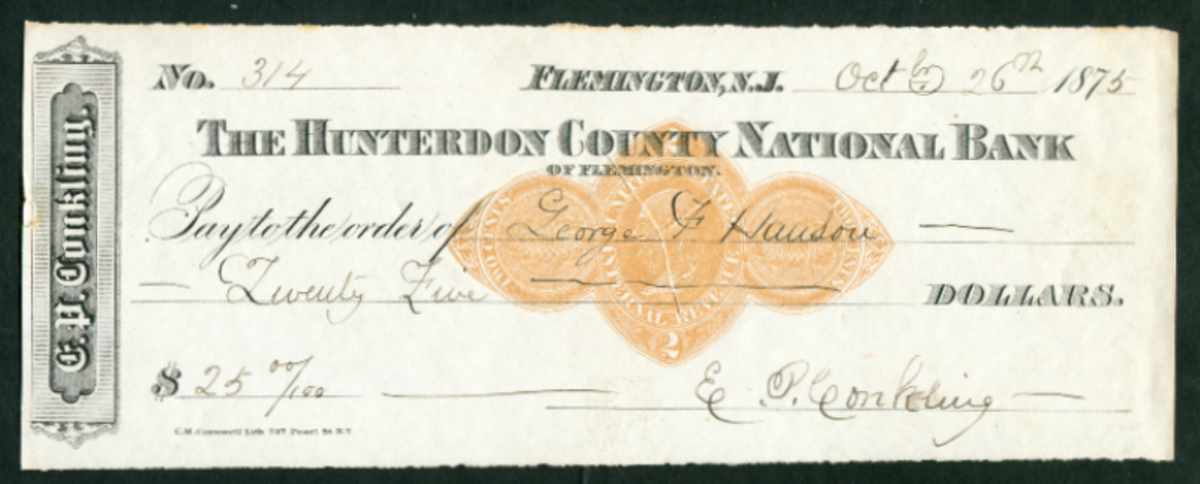 E. P. Conkling.
No. 314 FLEMINGTON, N.J. Oct 26th 1875
THE HUNTERDON COUNTY NATIONAL BANK
OF FLEMINGTON.
Pay to the order of George F. Hanson
Twenty Five DOLLARS.
$ 25 00/100 E. P. Conkling
INTERNAL REVENUE
2